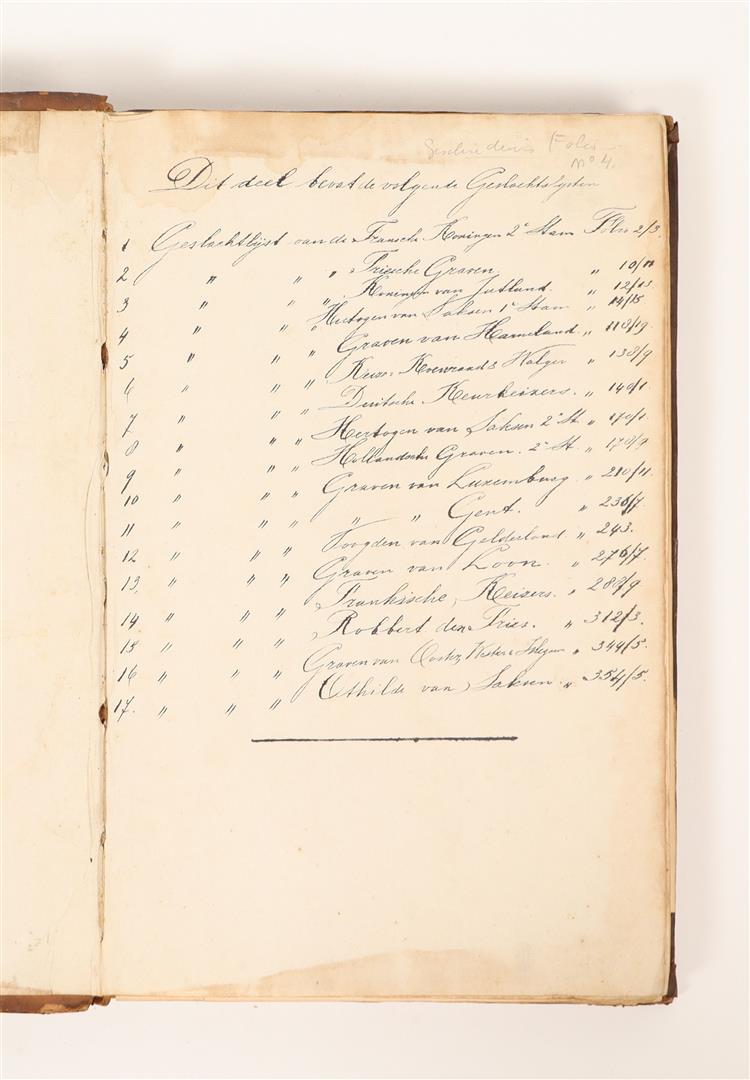 Geschiedenis Folio
No 4.
Dit deel bevat de volgende Geslachtslijsten
1 Geslachtlijst van de Fransche Koningen 2e Stam Folio 2/3.
2 " " " Friesche Graven. " 10/11
3 " " " Koningen van Jutland. " 12/13.
4 " " " Hertogen van Saksen 1e Stam " 14/15
5 " " " Graven van Hameland " 118/19.
6 " " " Keizer Koenraads Walger " 138/9
7 " " " Duitsche Keurkeizers. " 140/1.
8 " " " Hertogen van Saksen 2e St. " 170/1.
9 " " " Hollandsche Graven. 2e St. " 178/9
10 " " " Graven van Luxemburg " 210/11.
11 " " " " " Gent. " 236/7.
12 " " " Voogden van Gelderland " 243.
13, " " " Graven van Loon. " 276/7.
14 " " " Frankische Keizers. " 288/9
15 " " " Robbert den Fries. " 312/3.
16 " " " Graven van Ooster, Wester " 344/5.
17. " " " Othilde van Saksen " 354/5.